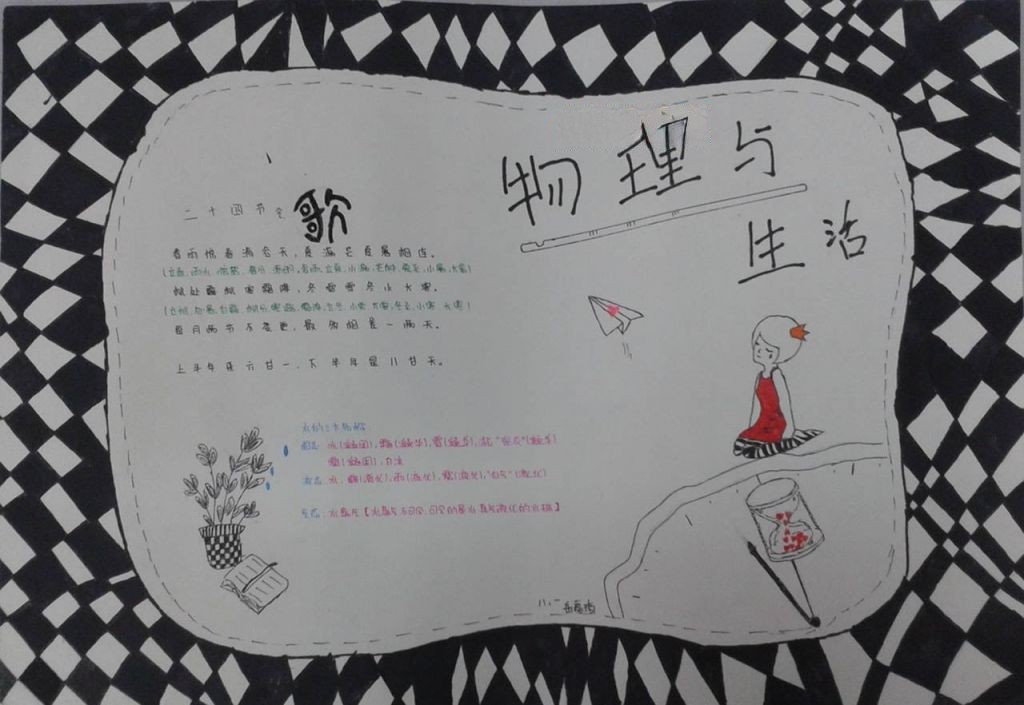 物理与
生活
二十四节气歌
春雨惊春清谷天，夏满芒夏暑相连。
(立春,雨水,惊蛰,春分,清明,谷雨,立夏,小满,芒种,夏至,小暑,大暑)
秋处露秋寒霜降，冬雪雪冬小大寒。
(立秋,处暑,白露,秋分,寒露,霜降,立冬,小雪,大雪,冬至,小寒,大寒)
每月两节不变更，最多相差一两天。
上半年来六廿一，下半年是八廿天。
水的三态
固态：冰(凝固),霜(凝华),雪(凝华),
雹(凝固),
液态：水,露(液化),雨(液化),雾(液化),"白气"(液化)
气态：水蒸气
八.二